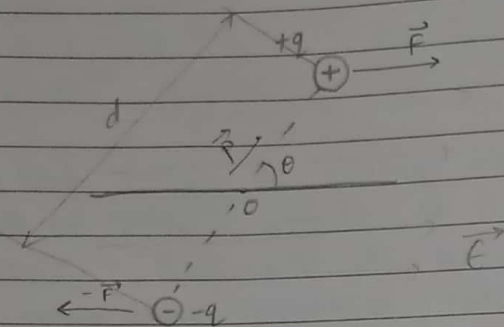 +q
F
+
d
θ
O
E
-F
- -q